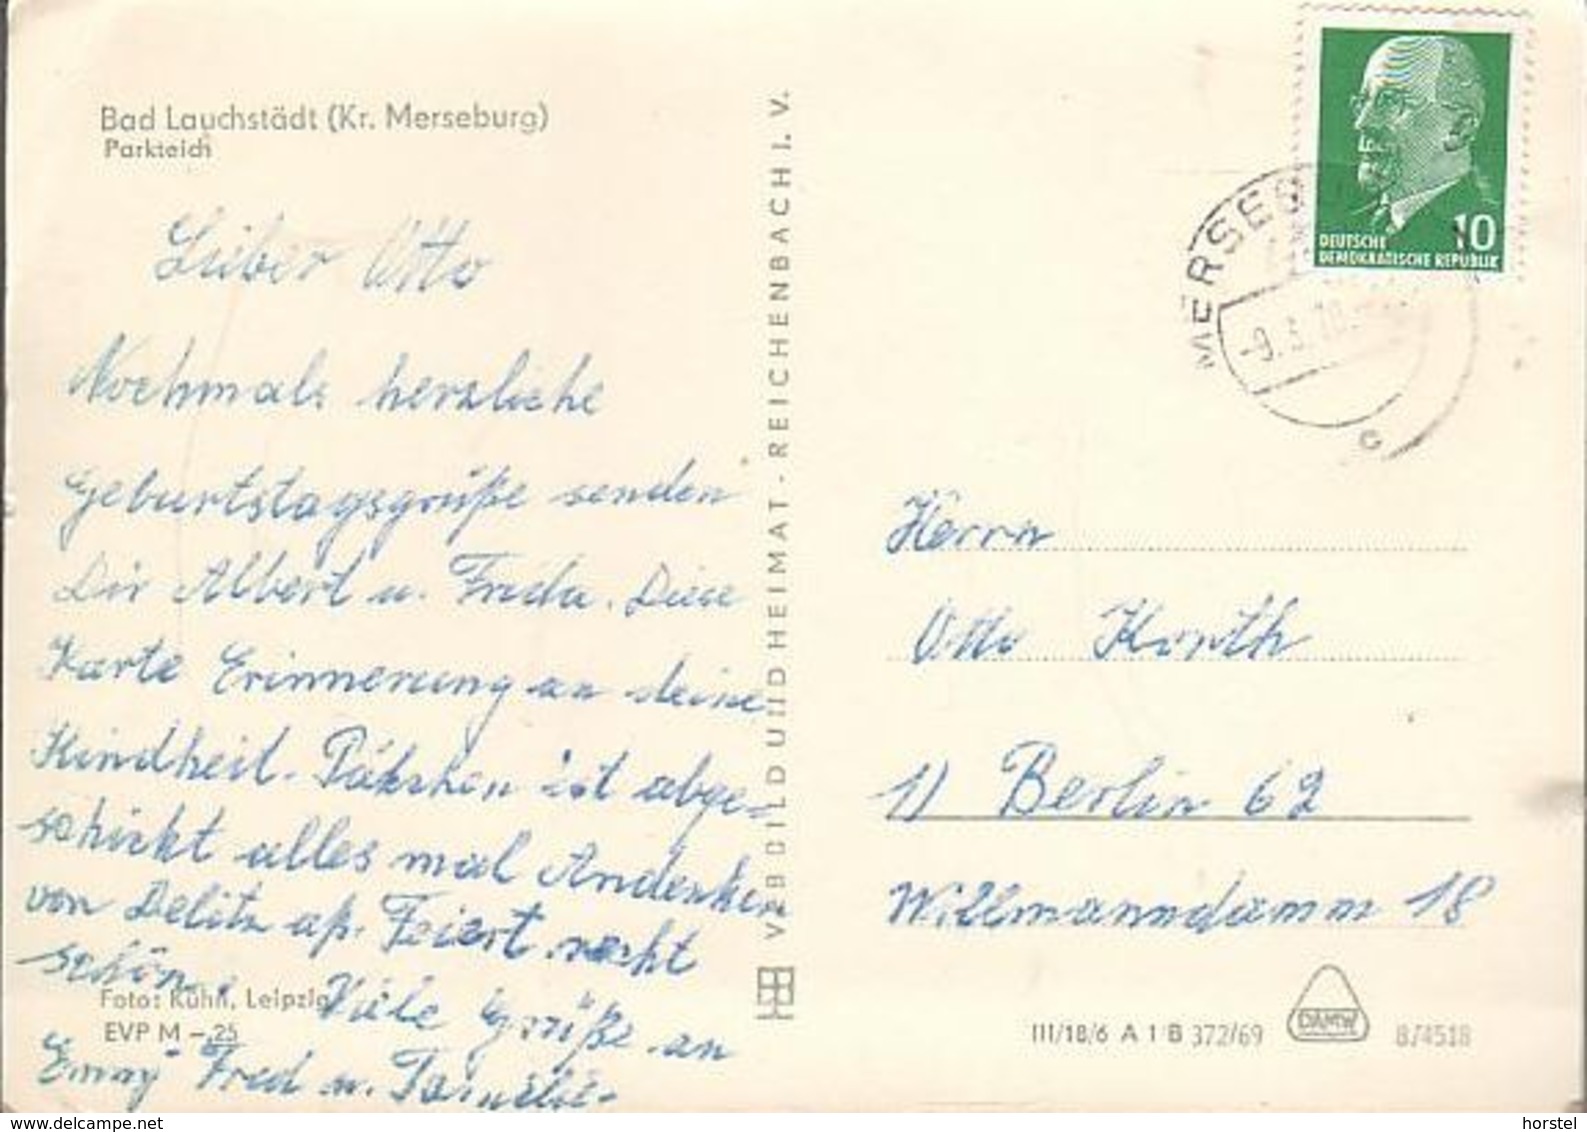 Bad Lauchstädt (Kr. Merseburg)
Parkteich
Lieber Otto
Nochmals herzliche
Geburtstagsgrüße senden
Dir Albert u. Frieda. Diese
Karte Erinnerung an deine
Kindheit. Päkchen ist abge=
schickt alles mal Andenken
von Delitz ap. Feiert recht
schön. Viele Grüße an
Emmy Fred u.
Foto: Kühn, Leipzig
EVP M -,25
VEB BILD UND HEIMAT - REICHENBACH I. V.
DEUTSCHE 10
DEMOKRATISCHE REPUBLIK
MERSEB
-9.3.70.
c
Herrn
Otto Korth
1) Berlin 62
Willmanndamm 18
III/18/6 A 1 B 372/69
DAMW
8/4518
www.delcampe.net
horstel